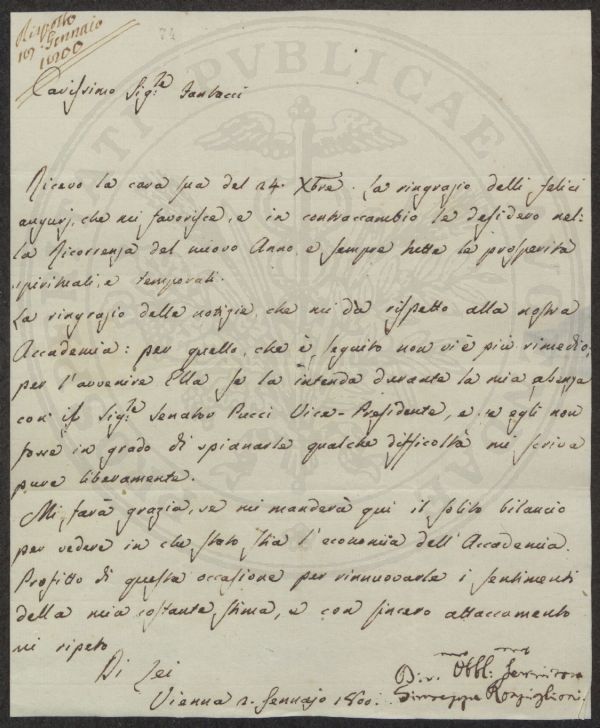 Risposto
10 Gennaio
1800
74
Carissimo Sig.re
Ricevo la cara sua del 24. Xbre. La ringrazio delli felici
augurj, che mi favorisce, e in contraccambio le desidero nel:
la Ricorrenza del nuovo Anno, e sempre tutte le prosperità
spirituali, e temporali.
La ringrazio delle notizie, che mi dà rispetto alla nostra
Accademia: per quello, che è seguito non vi è più rimedio;
per l'avvenire Ella se la intenda durante la mia absenza
con il Sig.re Senator Pucci Vice-Presidente, e se egli non
fosse in grado di spianarle qualche difficoltà mi scriva
pure liberamente.
Mi farà grazia, se mi manderà qui il solito bilancio
per vedere in che stato stia l'economia dell'Accademia.
Profitto di questa occasione per rinnuovarle i sentimenti
della mia costante stima, e con sincero attaccamento
mi ripeto
Di Lei
Vienna 2. Gennajo 1800.
Obbl. Servitore
Giuseppe